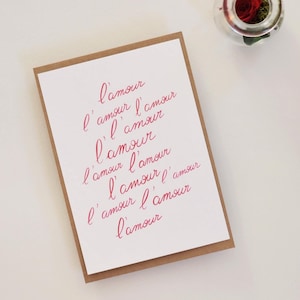 l'amour
l'amour l'amour
l'amour
l'amour
l'amour l'amour
l'amour
l'amour l'amour l'amour
l'amour